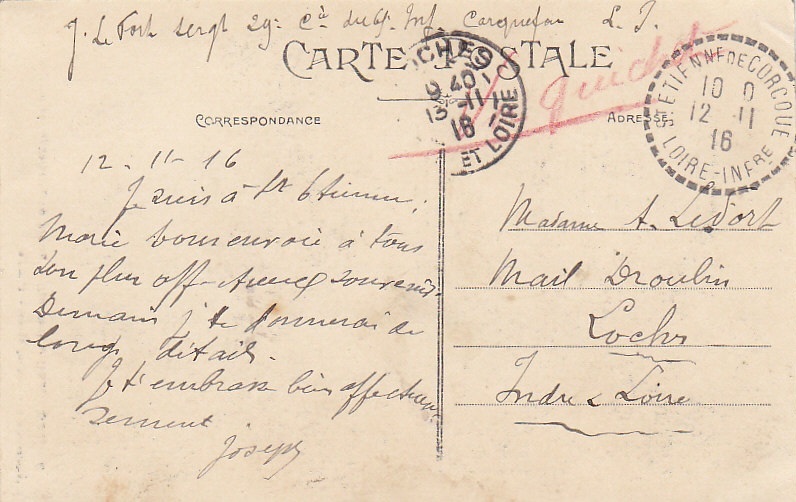 J. Le Fort sergt 29e Cie du 65e Inf. Carquefou L. I.
CARTE POSTALE
guichet
CHES
9 40
13-11
16
ET LOIRE
ST ETIENNE DE CORCOUE
10 0
12 11
16
LOIRE-INFRE
CORRESPONDANCE
ADRESSE
12-11-16
Je suis à St Etienne,
Marie vous envoie à tous
son plus affectueux souvenir.
Demain je te donnerai de
longs détails.
Je t'embrasse bien affectueu-
sement
Joseph
Madame A. Le Fort
Mail Droulin
Loches
Indre & Loire